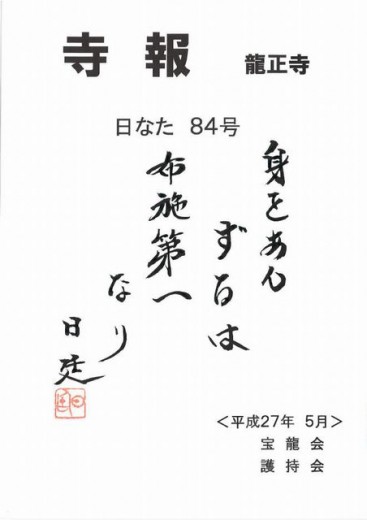 寺報 龍正寺
日なた 84号
身をあん
ずるは
布施第一
なり
日延
＜平成27年 5月＞
宝龍会
護持会